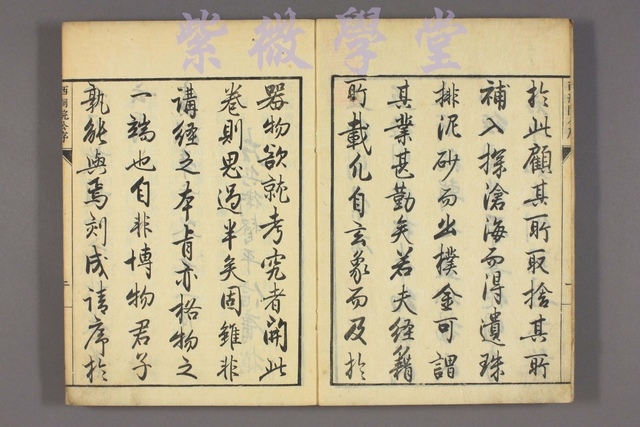 紫微學堂
於此顧其所取捨其所
補入探滄海而得遺珠
排泥砂而出樸金可謂
其業甚勤矣若夫經籍
所載凡自玄象而及於
器物欲就考究者開此
卷則思過半矣固雖非
講経之本旨亦格物之
一端也自非博物君子
孰能與焉刻成請序於